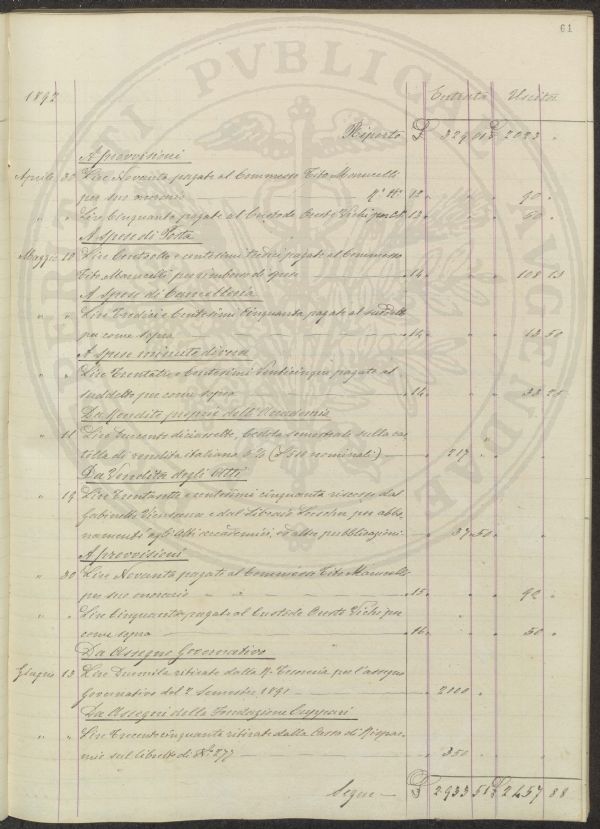 61
1892
Entrata Uscita
Riporto £ 329 01 £ 2023 "
A provvisioni
Aprile 30 Lire Novanta pagate al Commesso Tito Marucelli
per suo onorario N° 12 " " 90 "
" " Lire Cinquanta pagate al Custode Oreste Vichi per c.s. 13 " " 50 "
A Spese di Posta
Maggio 10 Lire Centootto e centesimi tredici pagate al Commesso
Tito Marucelli per rimborso di spese 14 " " 108 13
A Spese di Cancelleria
" " Lire Tredici e Centesimi Cinquanta pagate al suddetto
per come sopra 14 " " 13 50
A Spese minute diverse
" " Lire Trentatre e Centesimi Venticinque pagate al
suddetto per come sopra 14 " " 33 25
Da Rendite proprie dell'Accademia
" 11 Lire Duecento diciassette, Cedola semestrale sulla car
tella di rendita italiana 5% (£ 500 nominali) " 217 " "
Da Vendita degli Atti
" 14 Lire Trentasette e centesimi cinquanta riscosse dal
Gabinetto Vieusseux e dal Libraio Loescher per abbo
namento agli Atti accademici, ed altre pubblicazioni " 37 50 "
A provvisioni
" 30 Lire Novanta pagate al Commesso Tito Marucelli
per suo onorario 15 " " 90 "
" " Lire Cinquanta pagate al Custode Oreste Vichi per
come sopra 16 " " 50 "
Da Assegno Governativo
Giugno 13 Lire Duemila ritirate dalla R. Tesoreria per l'assegno
Governativo del 2° Semestre 1891 " 2000 "
Da Assegni della Fondazione Cuppari
" " Lire Trecentocinquanta ritirate dalla Cassa di Rispar
mio sul libretto di N° 277 " 350 "
Segue £ 2933 51 £ 2457 88